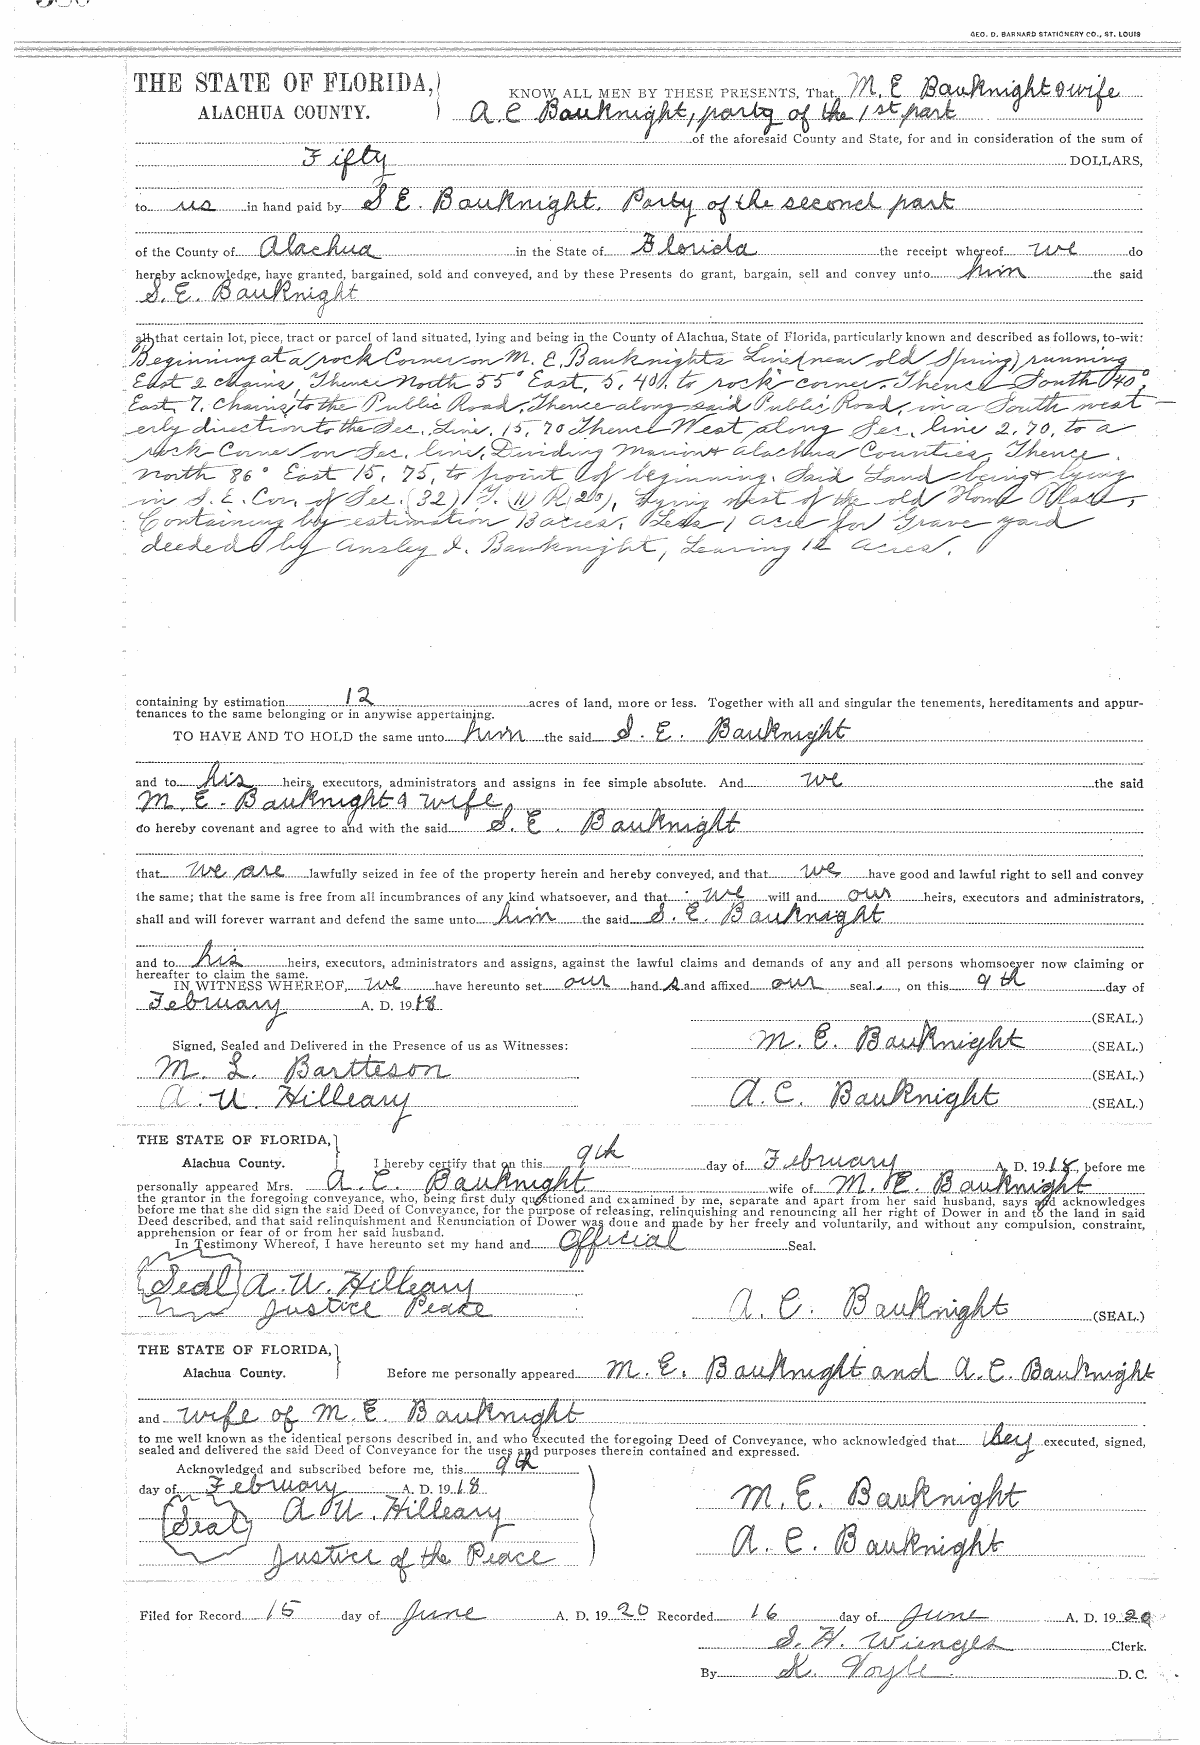 GEO. D. BARNARD STATIONERY CO., ST. LOUIS
THE STATE OF FLORIDA,
ALACHUA COUNTY.
KNOW ALL MEN BY THESE PRESENTS, That M. E Bauknight & wife
A. C Bauknight, party of the 1st part
of the aforesaid County and State, for and in consideration of the sum of
Fifty DOLLARS,
to us in hand paid by S E. Bauknight. Party of the second part
of the County of Alachua in the State of Florida the receipt whereof we do
hereby acknowledge, have granted, bargained, sold and conveyed, and by these Presents do grant, bargain, sell and convey unto him the said
S. E. Bauknight
all that certain lot, piece, tract or parcel of land situated, lying and being in the County of Alachua, State of Florida, particularly known and described as follows, to-wit:
Beginning at a rock Corner on M. E. Bauknights Line (near old Spring) running
East 2 chains, Thence North 55° East, 5.40 to rock corner. Thence South 40°
East, 7. Chains to the Public Road, Thence along said Public Road, in a South west
erly direction to the Sec. Line. 15,70 Thence West along Sec. line 2.70, to a
rock Corner on Sec. line, Dividing Marion & Alachua Counties, Thence
North 86° East 15,75, to point of beginning. Said Land being & lying
in S. E. Cor. of Sec. (32) T. (11) R (20), Lying west of the old Home Place,
Containing by estimation 13 acres. Less 1 acre for Grave yard
deeded by Ansley J. Bauknight, Leaving 12 acres.
containing by estimation 12 acres of land, more or less. Together with all and singular the tenements, hereditaments and appur-
tenances to the same belonging or in anywise appertaining.
TO HAVE AND TO HOLD the same unto him the said S. E. Bauknight
and to his heirs, executors, administrators and assigns in fee simple absolute. And we the said
M. E. Bauknight & wife
do hereby covenant and agree to and with the said S. E. Bauknight
that we are lawfully seized in fee of the property herein and hereby conveyed, and that we have good and lawful right to sell and convey
the same; that the same is free from all incumbrances of any kind whatsoever, and that we will and our heirs, executors and administrators,
shall and will forever warrant and defend the same unto him the said S. E. Bauknight
and to his heirs, executors, administrators and assigns, against the lawful claims and demands of any and all persons whomsoever now claiming or
hereafter to claim the same.
IN WITNESS WHEREOF, we have hereunto set our hand s and affixed our seal , on this 9th day of
February A. D. 1918
(SEAL.)
Signed, Sealed and Delivered in the Presence of us as Witnesses:
M. E. Bauknight (SEAL.)
M. L. Bartteson (SEAL.)
A. U. Hilleary A. C. Bauknight (SEAL.)
THE STATE OF FLORIDA,
Alachua County. I hereby certify that on this 9th day of February A. D. 1918, before me
personally appeared Mrs. A. C. Bauknight wife of M. E. Bauknight
the grantor in the foregoing conveyance, who, being first duly questioned and examined by me, separate and apart from her said husband, says and acknowledges
before me that she did sign the said Deed of Conveyance, for the purpose of releasing, relinquishing and renouncing all her right of Dower in and to the land in said
Deed described, and that said relinquishment and Renunciation of Dower was done and made by her freely and voluntarily, and without any compulsion, constraint,
apprehension or fear of or from her said husband.
In Testimony Whereof, I have hereunto set my hand and Official Seal.
Seal A. U. Hilleary
Justice Peace A. C. Bauknight (SEAL.)
THE STATE OF FLORIDA,
Alachua County. Before me personally appeared M. E. Bauknight and A. C. Bauknight
and wife of M. E. Bauknight
to me well known as the identical persons described in, and who executed the foregoing Deed of Conveyance, who acknowledged that they executed, signed,
sealed and delivered the said Deed of Conveyance for the uses and purposes therein contained and expressed.
Acknowledged and subscribed before me, this 9th
day of February A. D. 1918 M. E. Bauknight
Seal A. U. Hilleary
Justice of the Peace A. C. Bauknight
Filed for Record 15 day of June A. D. 1920 Recorded 16 day of June A. D. 1920
S. H. Wienges Clerk.
By K. Voyle D. C.